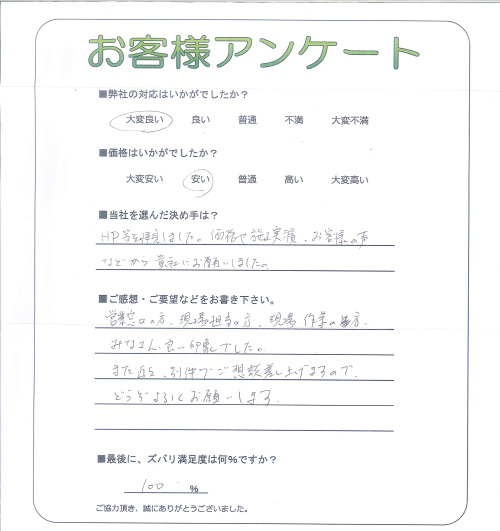 お客様アンケート
■弊社の対応はいかがでしたか？
大変良い 良い 普通 不満 大変不満
■価格はいかがでしたか？
大変安い 安い 普通 高い 大変高い
■当社を選んだ決め手は？
HP等を拝見しました。価格や施工実績、お客様の声
などから貴社にお願いしました。
■ご感想・ご要望などをお書き下さい。
営業窓口の方、現場担当の方、現場作業の皆方、
みなさん良い印象でした。
また 、別件でご相談差し上げますので、
どうぞよろしくお願いします。
■最後に、ズバリ満足度は何％ですか？
100 ％
ご協力頂き、誠にありがとうございました。